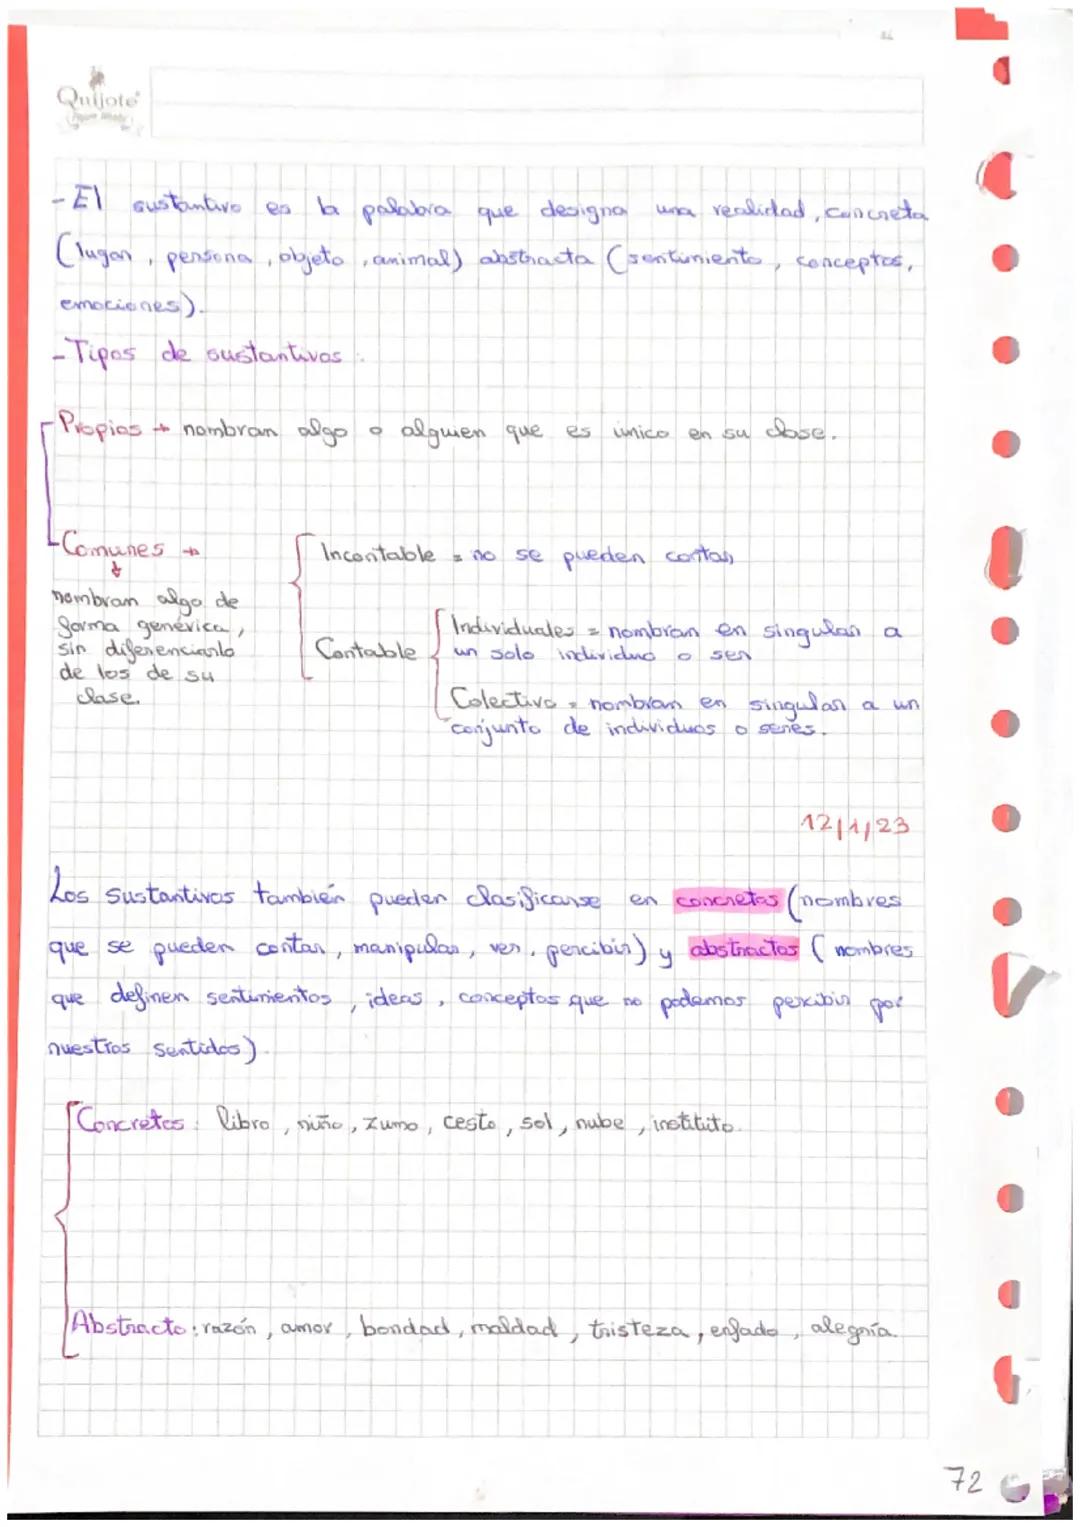 Quijote
- El sustantivo es la palabra que designa una realidad, concreta
(lugar, persona, objeto, animal) abstracta (sentimiento, conceptos,
emociones).
- Tipos de sustantivos:
Propios → nombran algo o alguien que es único en su clase.
Comunes →
nombran algo de
forma genérica,
sin diferenciarlo
de los de su
clase.
Incontable = no se pueden contar
Contable
Individuales = nombran en singular a
un solo individuo o ser
Colectivo = nombran en singular a un
conjunto de individuos o seres.
12/1/23
Los sustantivos también pueden clasificarse en concretos (nombres
que se pueden contar, manipular, ver, percibir) y abstractos (nombres
que definen sentimientos, ideas, conceptos que no podemos percibir por
nuestros sentidos).
Concretos: libro, niño, zumo, cesto, sol, nube, instituto.
Abstracto: razón, amor, bondad, maldad, tristeza, enfado, alegría.
72